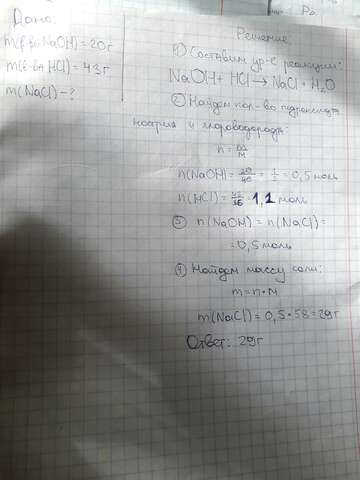 Дано:
m(р-ра NaOH) = 20г
m(в-ва HCl) = 43г
m(NaCl) - ?
Решение
① Составим ур-е реакции:
NaOH + HCl → NaCl + H₂O
② Найдем кол-во гидроксида
натрия и хлороводорода:
n = m/M
n(NaOH) = 20/40 = 1/2 = 0,5 моль
n(HCl) = 43/36 = 1,1 моль
③ n(NaOH) = n(NaCl) =
= 0,5 моль
④ Найдем массу соли:
m = n • M
m(NaCl) = 0,5 • 58 = 29г
Ответ: 29г